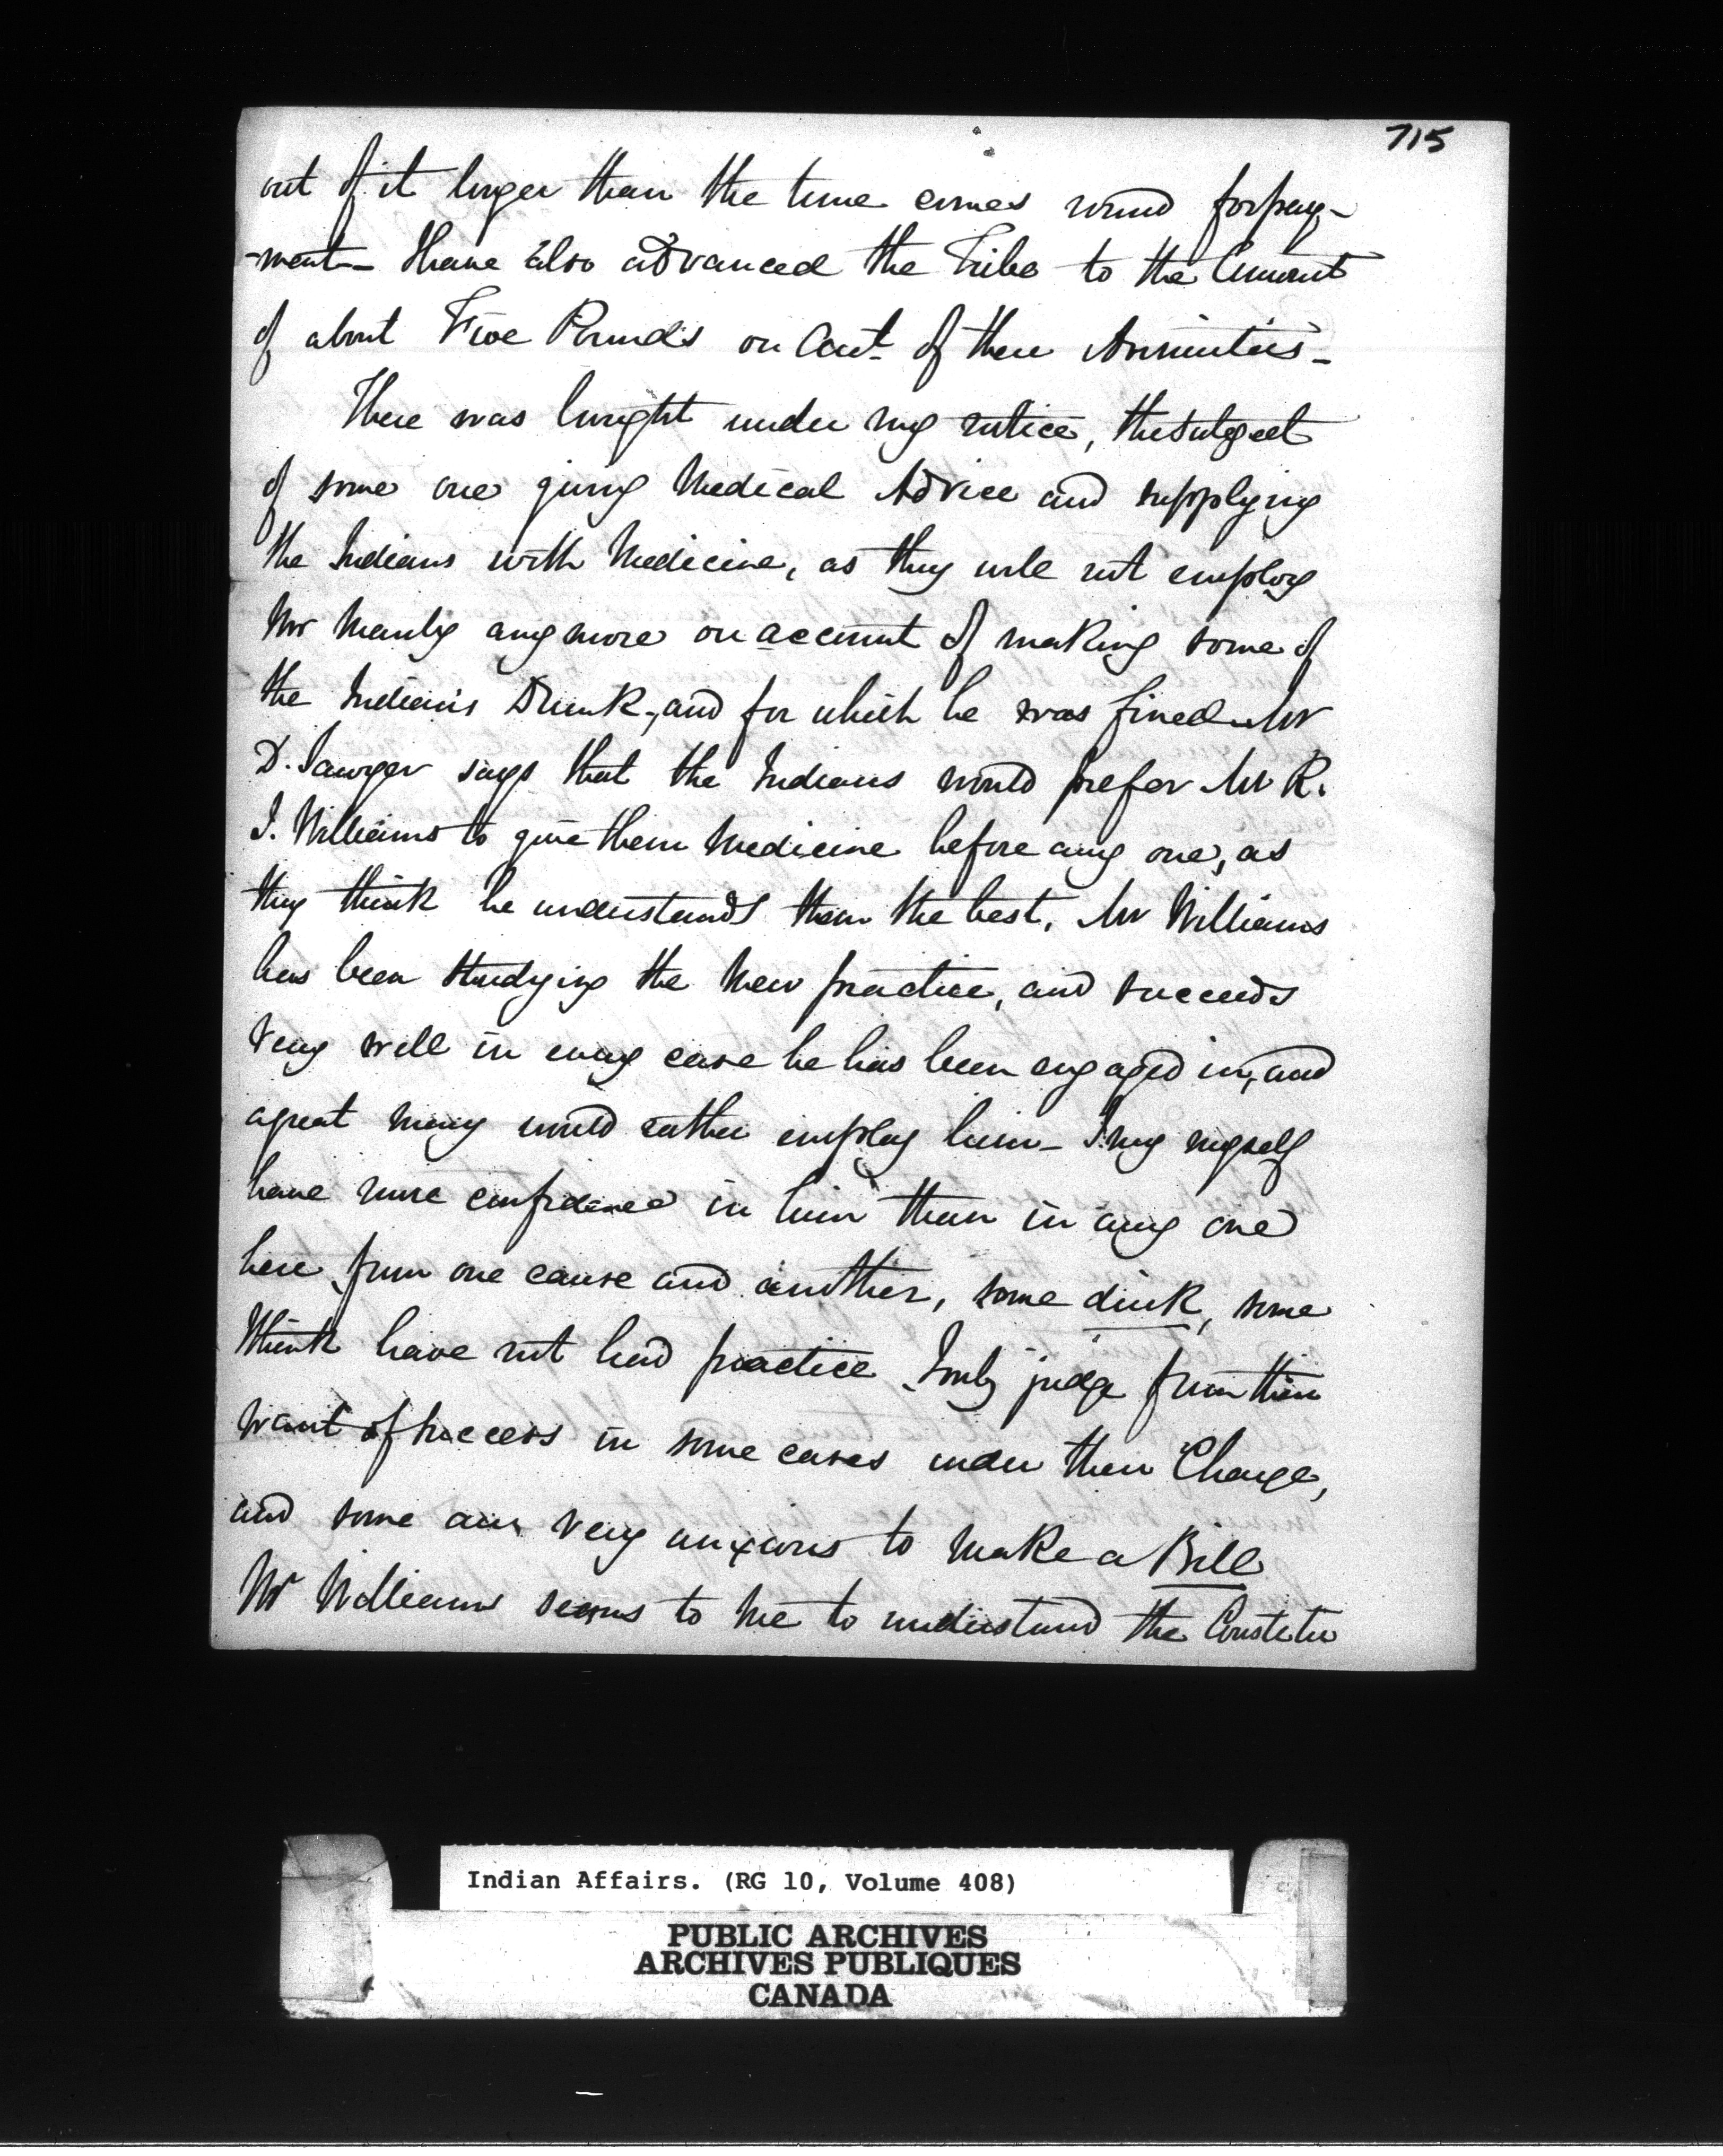 715
out of it longer than the time comes round for pay-
-ment - I have also advanced the Tribe to the Amount
of about Five Pounds on Acct of their Annuities -
There was brought under my notice, the subject
of some one giving Medical Advice and supplying
the Indians with Medicine, as they will not employ
Mr Manly any more on account of making some of
the Indians Drunk, and for which he was fined - Mr
D. Sawyer says that the Indians would prefer Mr R.
I. Williams to give them Medicine before any one, as
they think he understands them the best. Mr Williams
has been studying the New practice, and succeeds
very well in every case he has been engaged in, and
a great many would rather employ him - I my myself
have more confidence in him than in any one
here from one cause and another, some dink, some
I think have not had practice I only judge from their
want of success in some cases under their Charge,
and some are very anxious to make a Bill
Mr Williams seems to me to understand the Constitu
Indian Affairs. (RG 10, Volume 408)
PUBLIC ARCHIVES
ARCHIVES PUBLIQUES
CANADA